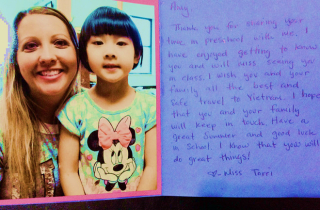 Amy,
Thank you for sharing your
time in preschool with me. I
have enjoyed getting to know
you and will miss seeing you
in class. I wish you and your
family all the best and
safe travel to Vietnam. I hope
that you and your family
will keep in touch. Have a
great summer and good luck
in school. I know that you will
do great things!
Miss Terri